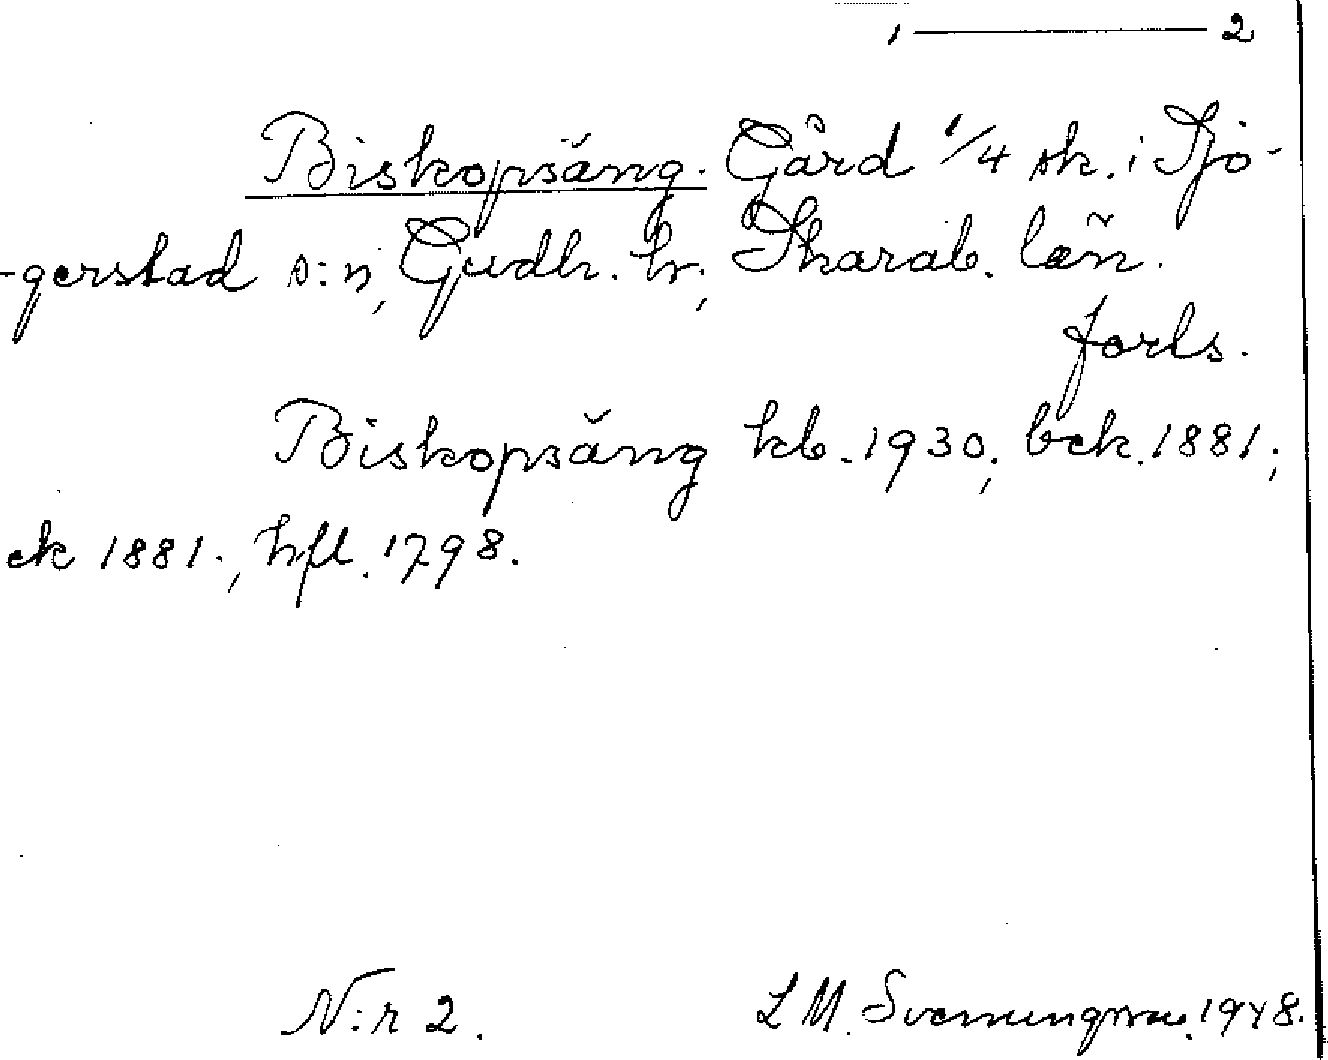 1 ——— 2
Biskopsäng. Gård 1/4 sk. i Sjo-
-gerstad s:n, Gudh. hr, Skarab. län.
forts.
Biskopsäng kb. 1930, bek. 1881,
ek 1881., hfl. 1798.
N:r 2. L M. Svenningsson. 1948.